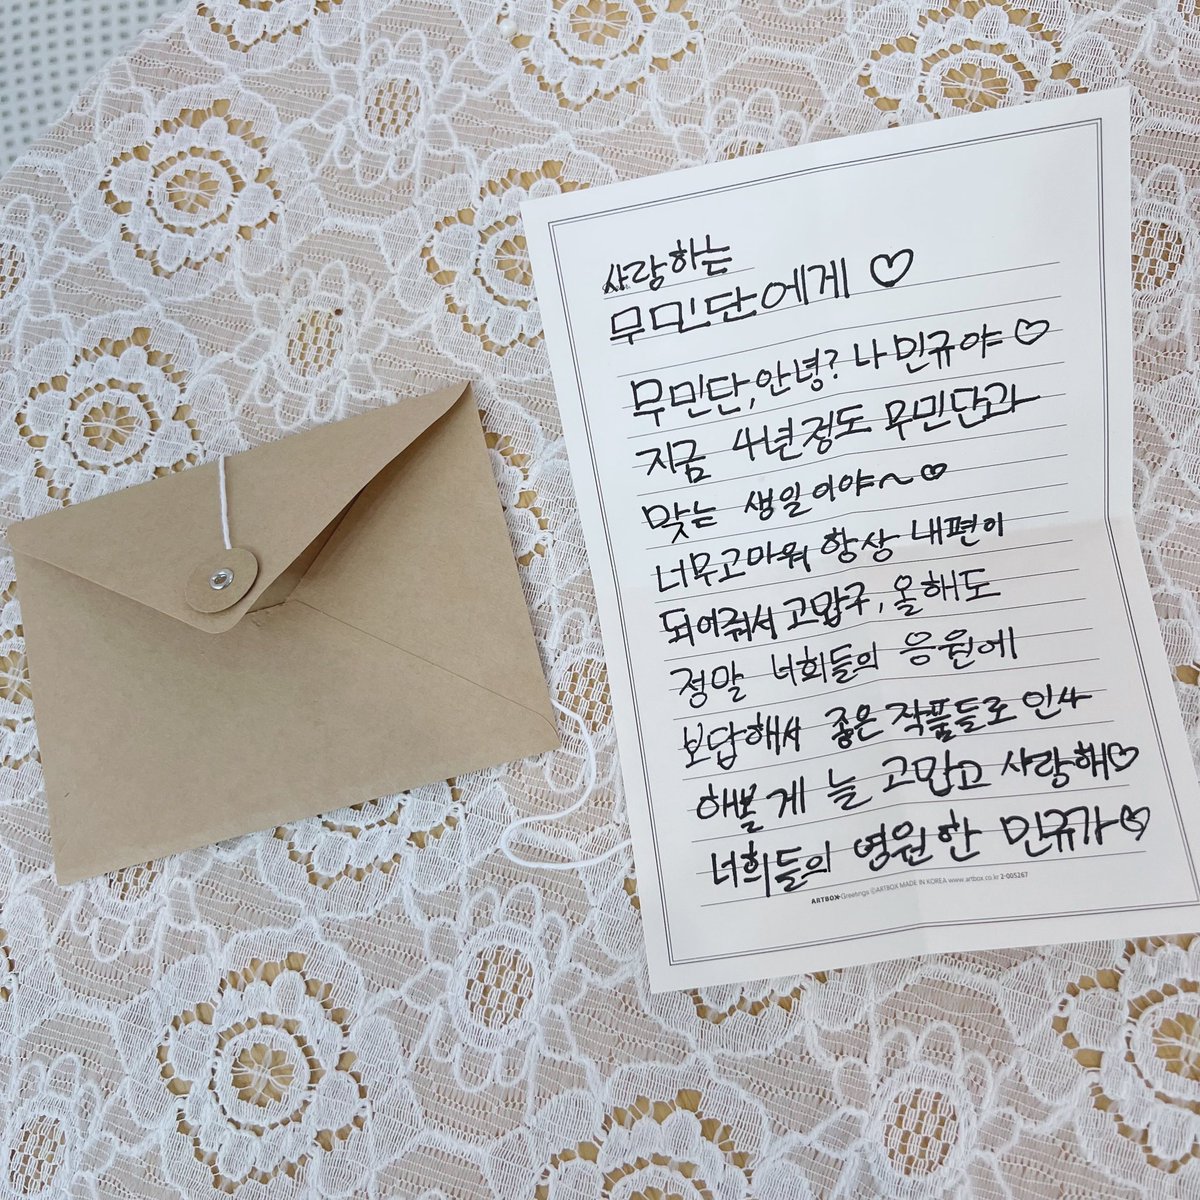 사랑하는
무민단에게 ♡
무민단, 안녕? 나 민규야 ♡
지금 4년정도 무민단과
맞는 생일이야~ ♡
너무고마워 항상 내편이
되어줘서 고맙구, 올해도
정말 너희들의 응원에
보답해서 좋은 작품들로 인사
해볼게 늘 고맙고 사랑해♡
너희들의 영원한 민규가♡
ARTBOX Greetings ©ARTBOX MADE IN KOREA www.artbox.co.kr 2-005267